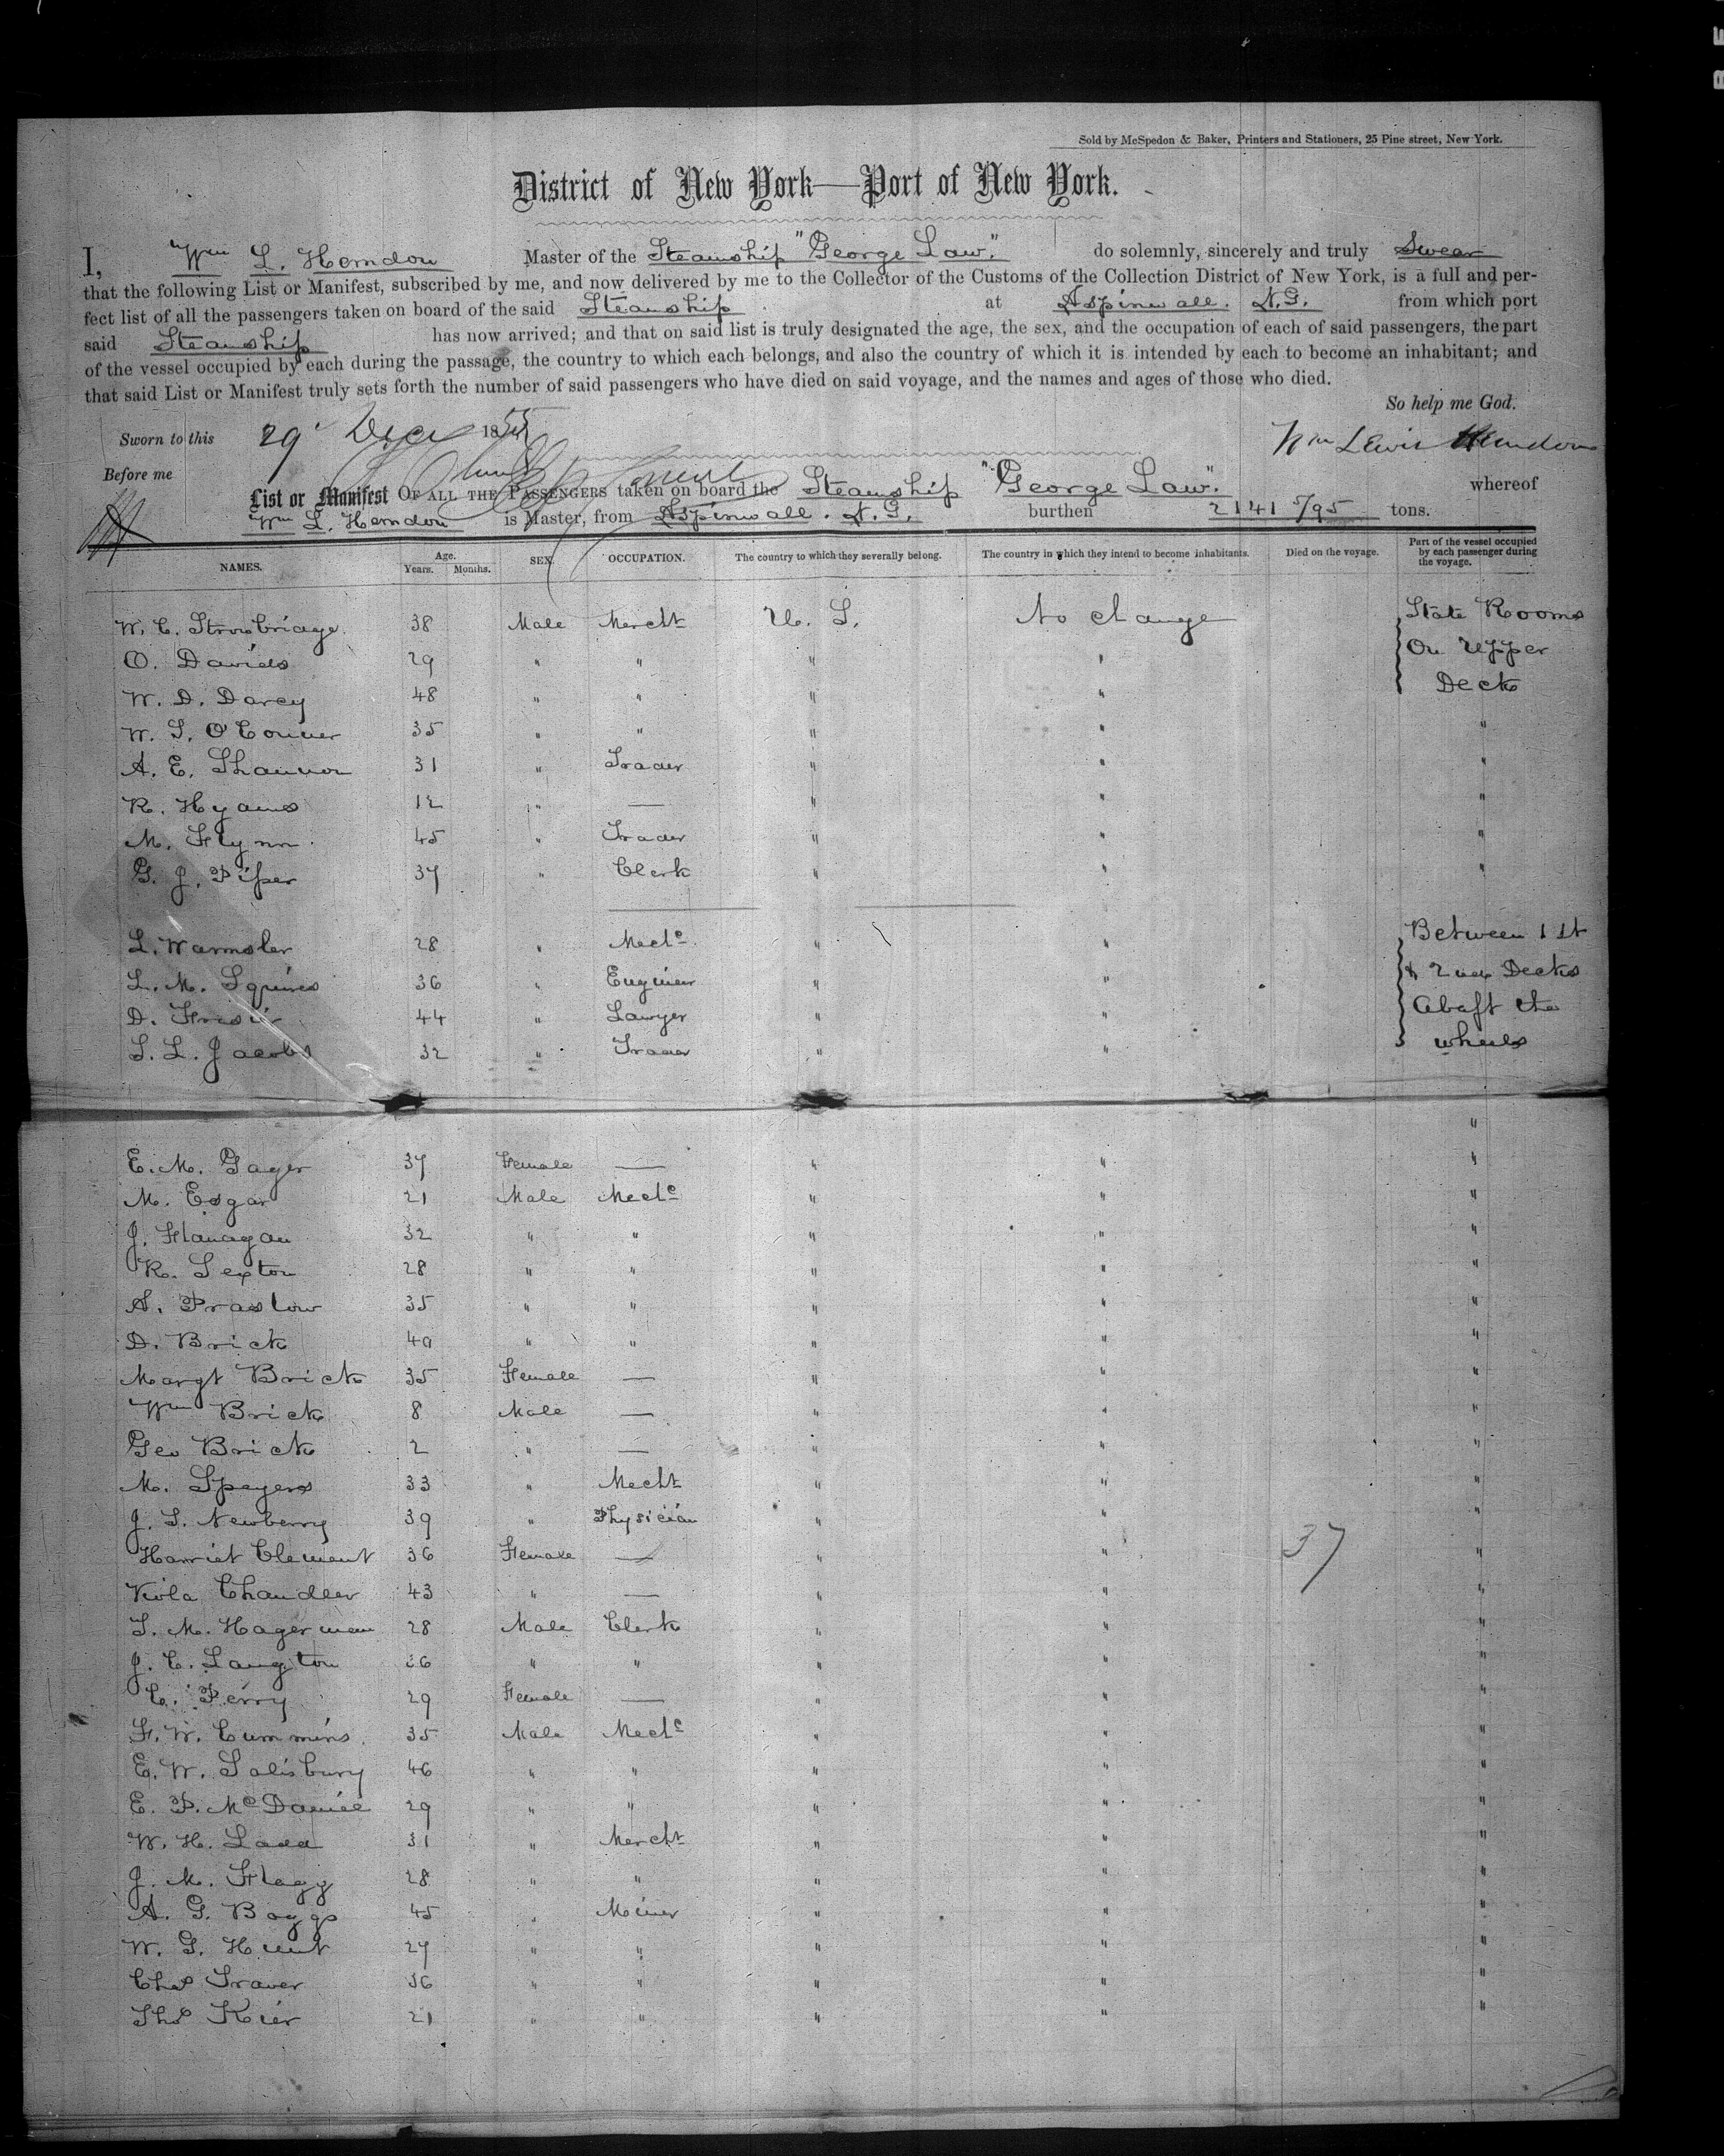 Sold by McSpedon & Baker, Printers and Stationers, 25 Pine street, New York.
District of New York—Port of New York.
I, Wm L. Herndon Master of the Steamship "George Law." do solemnly, sincerely and truly Swear
that the following List or Manifest, subscribed by me, and now delivered by me to the Collector of the Customs of the Collection District of New York, is a full and per-
fect list of all the passengers taken on board of the said Steamship at Aspinwall. N.G. from which port
said Steamship has now arrived; and that on said list is truly designated the age, the sex, and the occupation of each of said passengers, the part
of the vessel occupied by each during the passage, the country to which each belongs, and also the country of which it is intended by each to become an inhabitant; and
that said List or Manifest truly sets forth the number of said passengers who have died on said voyage, and the names and ages of those who died.
So help me God.
Sworn to this 29 1855 Wm Lewis Herndon
Before me
List or Manifest OF ALL THE PASSENGERS taken on board the Steamship "George Law." whereof
Wm L. Herndon is Master, from Aspinwall. N.G. burthen 2141 5/95 tons.
NAMES. Age. Years. Months. SEX. OCCUPATION. The country to which they severally belong. The country in which they intend to become inhabitants. Died on the voyage. Part of the vessel occupied by each passenger during the voyage.
W. C. Strowbridge 38 Male Mercht U. S. No change State Rooms
O. Davids 29 " " " " On Upper
W. D. Darcy 48 " " " " Deck
W. S. O'Conner 35 " " " " "
A. E. Shannon 31 " Trader " " "
R. Hyams 12 " — " " "
M. Flynn 45 " Trader " " "
G. J. Piper 37 " Clerk " " "
L. Warmsler 28 " Mechc " " Between 1st
L. M. Squires 36 " Engineer " " & 2nd Decks
D. 44 " Lawyer " " Abaft the
S. L. Jacobs 32 " Trader " " wheels
"
E. M. Gager 37 Female — " " "
M. Edgar 21 Male Mechc " " "
J. Flanagan 32 " " " " "
R. Sexton 28 " " " " "
A. Praslow 35 " " " " "
D. Brick 40 " " " " "
Margt Brick 35 Female — " " "
Wm Brick 8 Male — " " "
Geo Brick 2 " — " " "
M. Speyers 33 " Mecht " " "
J. S. Newberry 39 " Physician " " "
Harriet Clement 36 Female — " " 37 "
Chandler 43 " — " " "
S. M. Hagerman 28 Male Clerk " " "
J. C. Langton 26 " " " " "
C. Perry 29 Female — " " "
F. W. Cummins 35 Male Mechc " " "
E. W. Salisbury 46 " " " " "
E. P. McDaniel 29 " " " " "
W. H. Ladd 31 " Mercht " " "
J. M. Flagg 28 " " " " "
A. G. Boggs 45 " Meiner " " "
W. G. Hunt 27 " " " " "
Chas Traver 36 " " " " "
Thos Kier 21 " " " " "